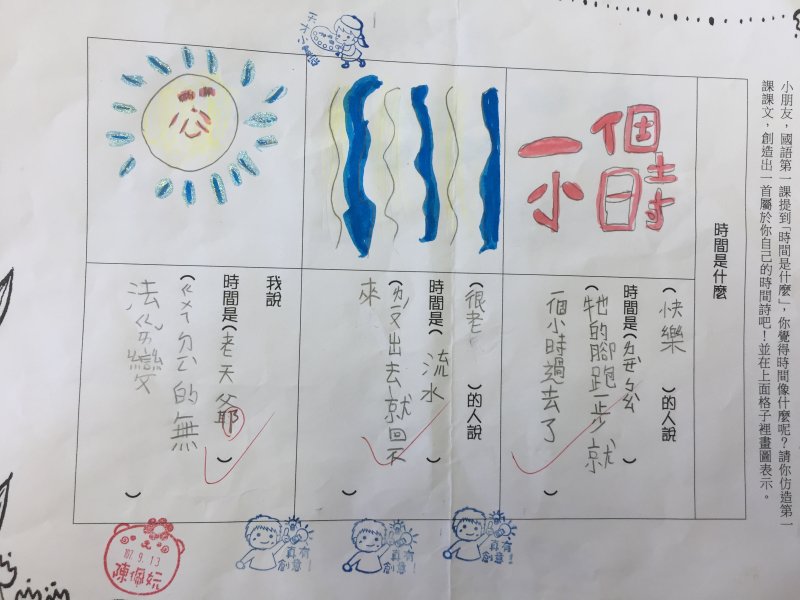 小朋友，國語第一課提到「時間是什麼」，你覺得時間像什麼呢？請你仿造第一
課課文，創造出一首屬於你自己的時間詩吧！並在上面格子裡畫圖表示。
時間是什麼
一個
小時
（快樂）的人說
時間是（
）
（牠的腳跑一步就
一個小時過去了）
（很老）的人說
時間是（流水）
（出去就回不
來）
我說
時間是（老天爺）
（的無
法ㄍㄞ變）
真有創意！
真有創意！
真有創意！
107.9.13